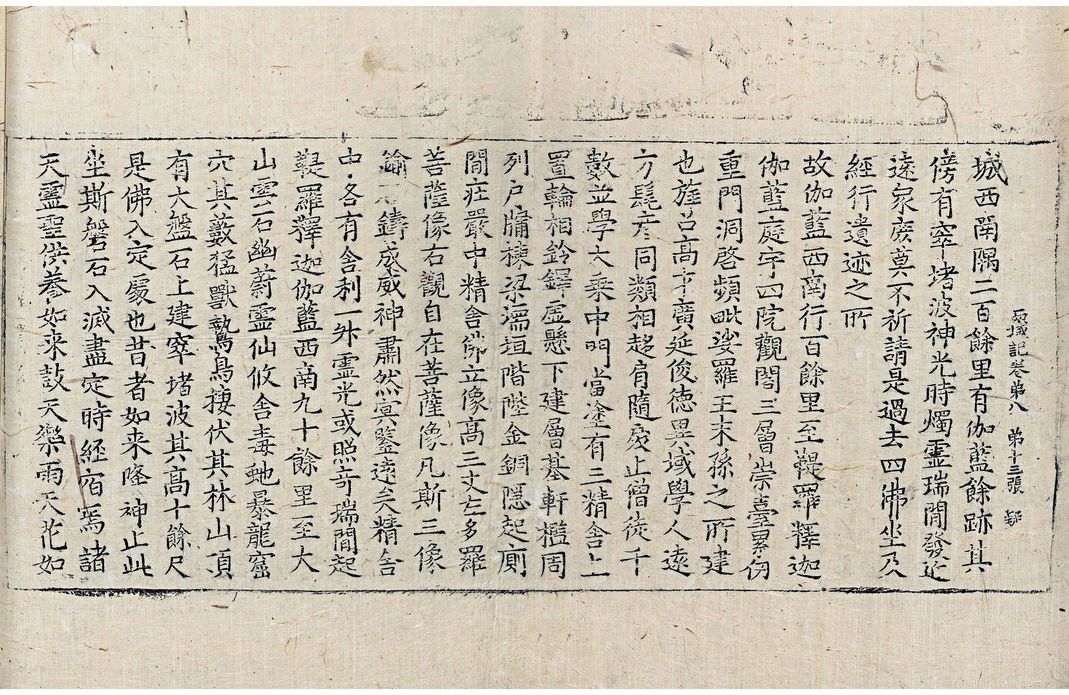 西域記卷第八 第十三張
城西南隅二百餘里有伽藍餘跡其
傍有窣堵波神光時燭靈瑞閒發近
遠衆庶莫不祈請是過去四佛坐及
經行遺迹之所
故伽藍西南行百餘里至鞮羅釋迦
伽藍庭宇四院觀閣三層崇臺累仞
重門洞啓頻毗娑羅王末孫之所建
也旌召高才廣延俊德異域學人遠
方髦彥同類相趍肩隨戾止僧徒千
數並學大乘中門當塗有三精舍上
置輪相鈴鐸虛懸下建層基軒檻周
列戶牖棟梁壖垣階陛金銅隱起廁
閒莊嚴中精舍佛立像高三丈左多羅
菩薩像右觀自在菩薩像凡斯三像
鍮石鑄成威神肅然冥鑒遠矣精舍
中各有舍利一升靈光或照奇瑞閒起
鞮羅釋迦伽藍西南九十餘里至大
山雲石幽蔚靈仙攸舍毒虵暴龍窟
穴其藪猛獸鷙鳥棲伏其林山頂
有大盤石上建窣堵波其高十餘尺
是佛入定處也昔者如來降神止此
坐斯磐石入滅盡定時經宿焉諸
天靈聖供養如來鼓天樂雨天花如